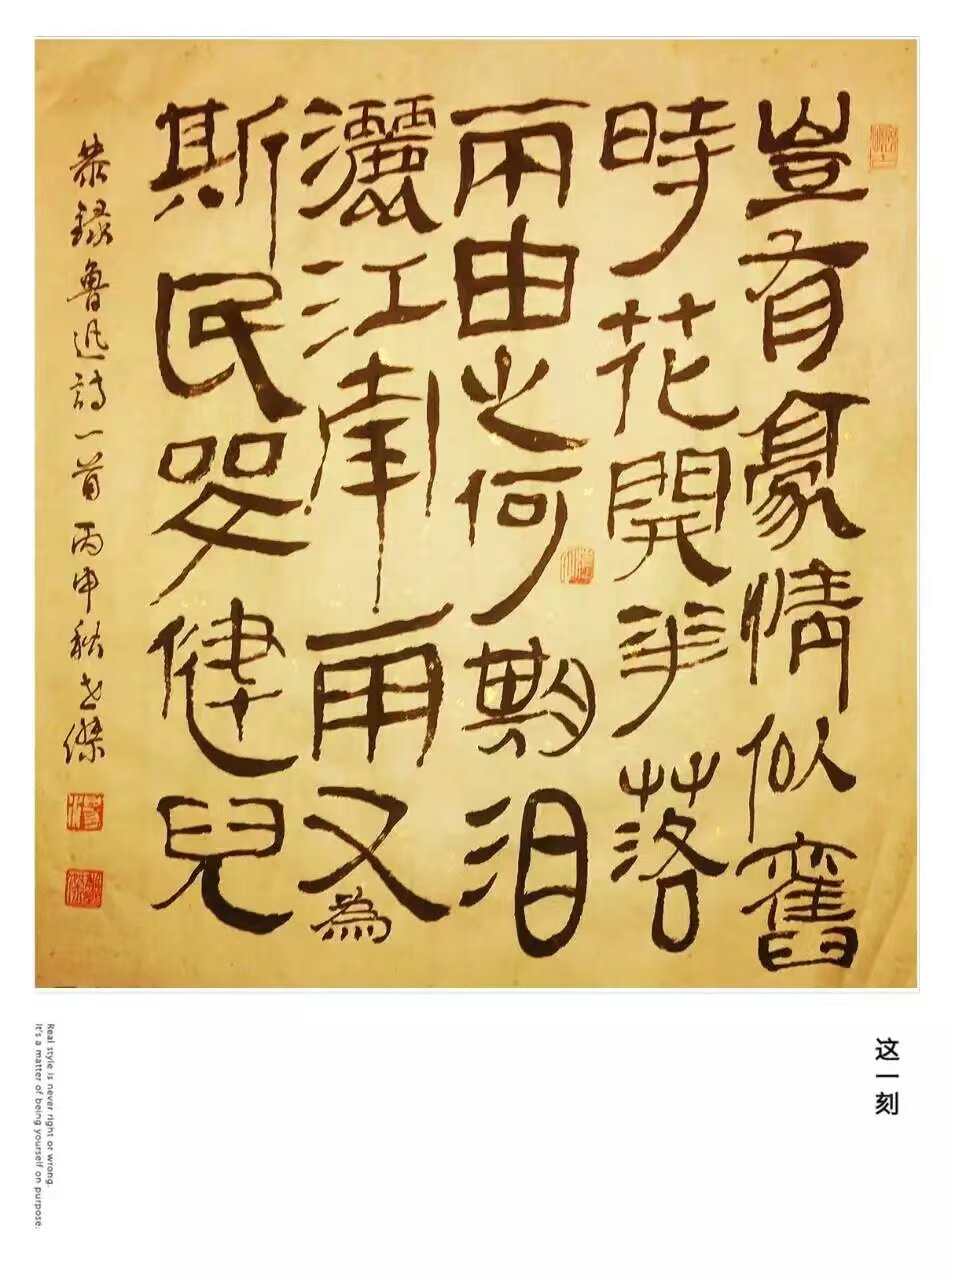 豈有豪情似舊
時花開花落
兩由之何期泪
灑江南雨又為
斯民哭健兒
恭録魯迅詩一首丙申秋世傑
这一刻
Real style is never right or wrong.
It's a matter of being yourself on purpose.